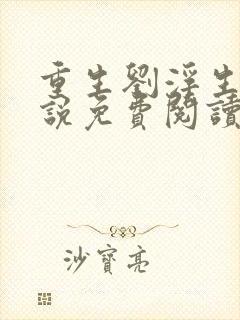 重生劉淫生
說免費閱讀
沙寶亮